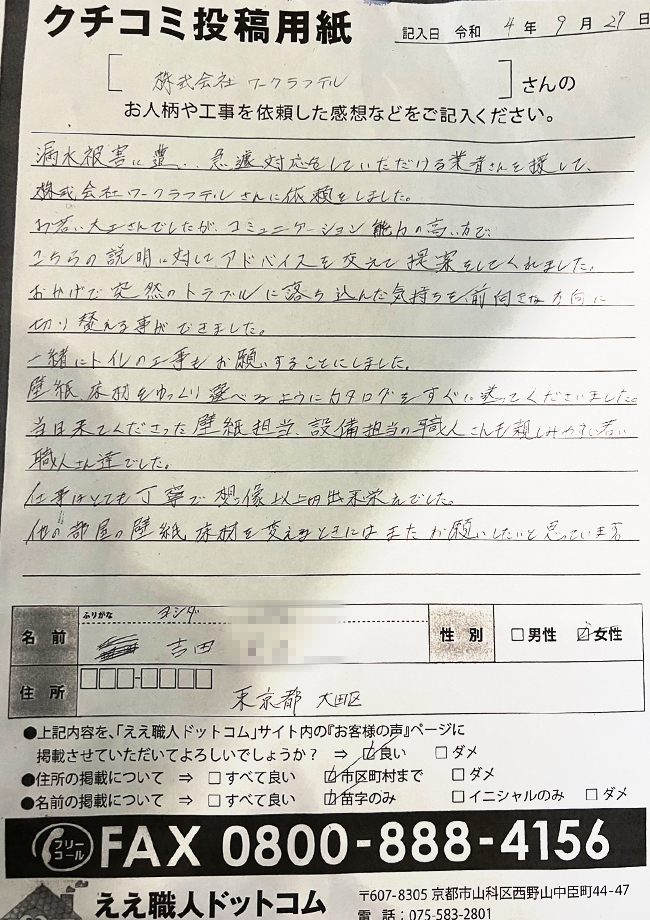 クチコミ投稿用紙
記入日 令和 4 年 9 月 27 日
[ 株式会社 ワークラフテル ] さんの
お人柄や工事を依頼した感想などをご記入ください。
漏水被害に遭い、急遽対応をしていただける業者さんを探して、
株式会社ワークラフテルさんに依頼をしました。
お若い大工さんでしたが、コミュニケーション能力の高い方で、
こちらの説明に対してアドバイスを交えて提案をしてくれました。
おかげで突然のトラブルに落ち込んだ気持ちを前向きな方向に
切り替える事ができました。
一緒にトイレの工事もお願いすることにしました。
壁紙、床材をゆっくり選べるようにカタログをすぐに送ってくださいました。
当日来てくださった壁紙担当、設備担当の職人さんも親しみやすい若い
職人さん達でした。
仕事はとても丁寧で想像以上の出来栄えでした。
他の部屋の壁紙、床材を変えるときにはまたお願いしたいと思っています
ふりがな ヨシダ
名前 吉田
性別 □男性 ☑女性
住所 □□□-□□□□
東京都 大田区
●上記内容を、「ええ職人ドットコム」サイト内の『お客様の声』ページに
掲載させていただいてよろしいでしょうか? ⇒ ☑良い □ダメ
●住所の掲載について ⇒ □すべて良い ☑市区町村まで □ダメ
●名前の掲載について ⇒ □すべて良い ☑苗字のみ □イニシャルのみ □ダメ
フリーコール FAX 0800-888-4156
ええ職人ドットコム
〒607-8305 京都市山科区西野山中臣町44-47
電話:075-583-2801